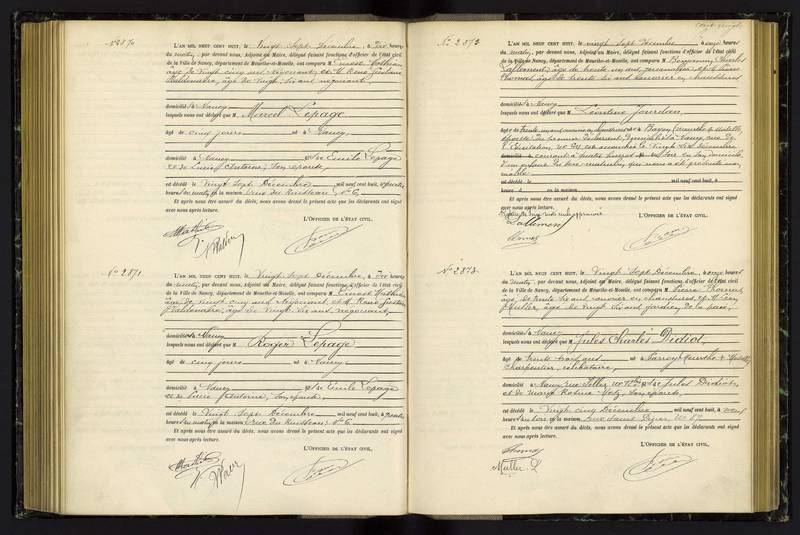 N° 2870
L'AN MIL NEUF CENT HUIT, le vingt sept Décembre, à dix heures
du matin, par devant nous, Adjoint au Maire, délégué faisant fonctions d'officier de l'état civil
de la Ville de Nancy, département de Meurthe-et-Moselle, ont comparu M. Ernest
âgé de vingt cinq ans, négociant, et M. René
âgé de vingt six ans négociant
domiciliés à Nancy
lesquels nous ont déclaré que M Marcel Lepage
âgé de cinq jours né à Nancy
domicilié à Nancy fils de Emile Lepage
et de Lucie Antoine, son épouse,
est décédé le vingt sept Décembre mil neuf cent huit, à
heures du matin en la maison rue du Ruisseau, n° 6
Et après nous être assuré du décès, nous avons dressé le présent acte que les déclarants ont signé
avec nous après lecture.
L'OFFICIER DE L'ÉTAT CIVIL,
N° 2871
L'AN MIL NEUF CENT HUIT, le vingt sept Décembre, à dix heures
du matin, par devant nous, Adjoint au Maire, délégué faisant fonctions d'officier de l'état civil
de la Ville de Nancy, département de Meurthe-et-Moselle, ont comparu M. Ernest
âgé de vingt cinq ans négociant, et M. René
âgé de vingt six ans négociant,
domiciliés à Nancy
lesquels nous ont déclaré que M Roger Lepage
âgé de cinq jours né à Nancy
domicilié à Nancy fils de Emile Lepage
et de Lucie Antoine, son épouse,
est décédé le vingt sept Décembre mil neuf cent huit, à
heures du matin en la maison rue du Ruisseau, n° 6
Et après nous être assuré du décès, nous avons dressé le présent acte que les déclarants ont signé
avec nous après lecture.
L'OFFICIER DE L'ÉTAT CIVIL,
N° 2872
L'AN MIL NEUF CENT HUIT, le vingt sept Décembre à onze heures
du matin, par devant nous, Adjoint au Maire, délégué faisant fonctions d'officier de l'état civil
de la Ville de Nancy, département de Meurthe-et-Moselle, ont comparu M. Benjamin Charles
Lallement, âgé de trente un ans, et M. Pierre
Thomas, âgé de trente six ans ouvrier en chaussures
domiciliés à Nancy
lesquels nous ont déclaré que M Léontine Jourdan,
âgé de trente un ans née à Bayon (Meurthe et Moselle)
épouse du premier déclarant domiciliée à Nancy, rue de
est accouchée le vingt six Décembre
courant à quatre heures du soir en son domicile
d'un enfant du sexe masculin qui nous a été présenté sans
est décédé le mil neuf cent huit, à
heures d en la maison
Et après nous être assuré du décès, nous avons dressé le présent acte que les déclarants ont signé
avec nous après lecture.
L'OFFICIER DE L'ÉTAT CIVIL,
Lallement
Thomas
N° 2873
L'AN MIL NEUF CENT HUIT, le vingt sept Décembre, à onze heures
du matin, par devant nous, Adjoint au Maire, délégué faisant fonctions d'officier de l'état civil
de la Ville de Nancy, département de Meurthe-et-Moselle, ont comparu M. Pierre Thomas,
âgé de trente six ans ouvrier en chaussures, et M. Léon
Muller, âgé de vingt six ans gardien de la paix,
domiciliés à Nancy
lesquels nous ont déclaré que M Jules Charles Didiot,
âgé de trente trois ans né à Parroy Meurthe & Moselle
charpentier, célibataire,
domicilié à Nancy, rue fils de Jules Didiot,
et de Marie son épouse,
est décédé le vingt cinq Décembre mil neuf cent huit, à neuf
heures du soir, en la maison rue Saint Dizier, n° 87
Et après nous être assuré du décès, nous avons dressé le présent acte que les déclarants ont signé
avec nous après lecture.
L'OFFICIER DE L'ÉTAT CIVIL,
Thomas
Muller L